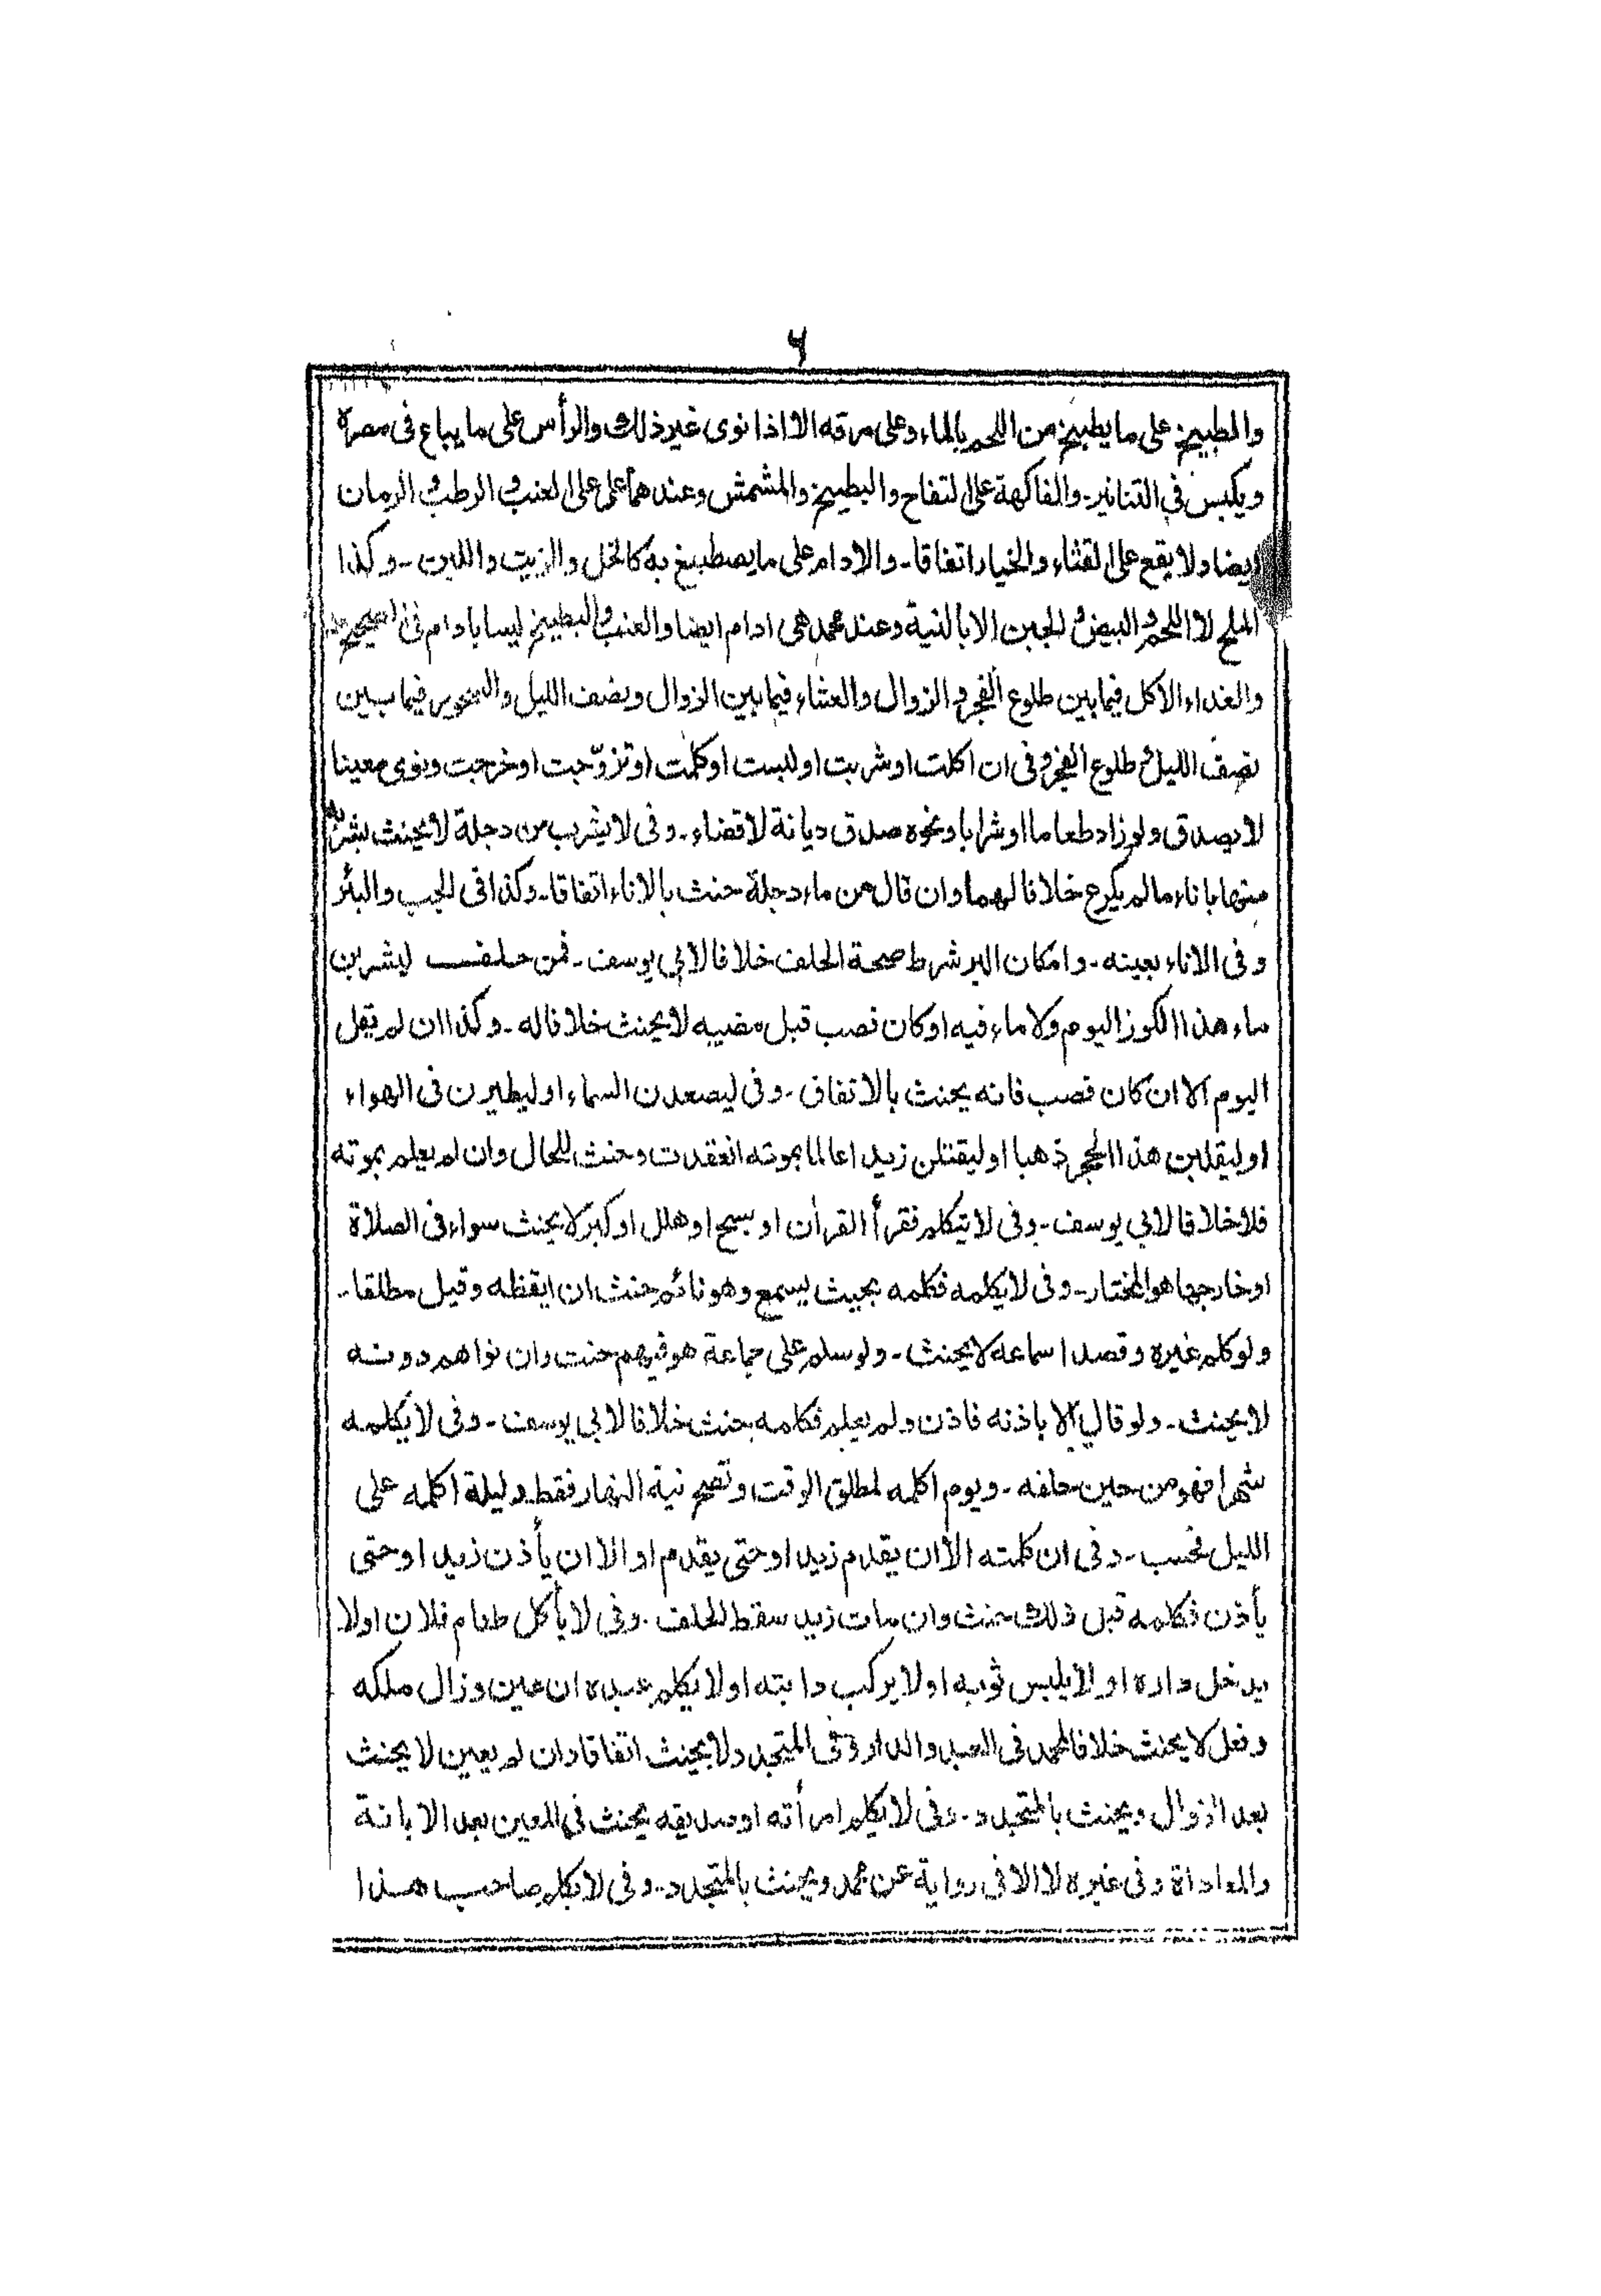 ٦
والطبيخ على ما يطبخ من اللحم بالماء وعلى مرقه الا اذا نوى غير ذلك والرأس على ما يباع فى مصره
ويكبس في التنانير ـ والفاكهة على التفاح والبطيخ والمشمش وعندهما على العنب و الرطب و الرمان
ايضا ولا يقع على القثاء والخيار اتفاقا ـ والادام على ما يصطبغ به كالخل والزيت واللبن ـ وكذا
الملح لا اللحم و البيض و الجبن الا بالنية وعند محمد هى ادام ايضا والعنب و البطيخ ليسا بادام فى الصحيح
والغداء الاكل فيما بين طلوع الفجر و الزوال والعشاء فيما بين الزوال ونصف الليل والسحور فيما بين
نصف الليل و طلوع الفجر و فى ان اكلت او شربت او لبست او كلمت او تزوّجت او خرجت ونوى معينا
لا يصدق ولو زاد طعاما او شرابا ونحوه صدق ديانة لا قضاء ـ وفى لا يشرب من دجلة لا يحنث بشربه
منها باناء ما لم يكرع خلافا لهما وان قال من ماء دجلة حنث بالاناء اتفاقا ـ وكذا فى الجب والبئر
وفى الاناء بعينه ـ وامكان البر شرط صحة الحلف خلافا لابي يوسف ـ فمن حلف ليشربن
ماء هذا الكوز اليوم ولا ماء فيه او كان فصب قبل مضيه لا يحنث خلافا له ـ وكذا ان لم يقل
اليوم الا ان كان فصب فانه يحنث بالاتفاق ـ وفى ليصعدن السماء او ليطيرن فى الهواء
او ليقلبن هذا الحجر ذهبا او ليقتلن زيدا عالما بموته انعقدت وحنث للحال وان لم يعلم بموته
فلا خلافا لابي يوسف ـ وفى لا يتكلم فقرأ القرأن او سبح او هلل او كبر لا يحنث سواء فى الصلاة
او خارجها هو المختار ـ وفى لا يكلمه فكلمه بحيث يسمع وهو نائم حنث ان ايقظه وقيل مطلقا ـ
ولو كلم غيره وقصد اسماعه لا يحنث ـ ولو سلم على جماعة هو فيهم حنث وان نواهم دونه
لا يحنث ـ ولو قال الا باذنه فاذن ولم يعلم فكلمه حنث خلافا لابي يوسف ـ وفى لا يكلمه
شهرا فهو من حين حلفه ـ ويوم اكلمه لمطلق الوقت وتصح نية النهار فقط وليلة اكلمه على
الليل فحسب ـ وفى ان كلمته الا ان يقدم زيد او حتى يقدم او الا ان يأذن زيد او حتى
يأذن فكلمه قبل ذلك حنث وان مات زيد سقط الحلف ـ وفى لا يأكل طعام فلان اولا
يدخل داره او لا يلبس ثوبه او لا يركب دابته او لا يكلم عبده ان عين وزال ملكه
وفعل لا يحنث خلافا لمحمد فى العبد والدار وفى المتجدد لا يحنث اتفاقا وان لم يعين لا يحنث
بعد الزوال ويحنث بالمتجدد ـ وفى لا يكلم امرأته او صديقه يحنث في المعين بعد الابانة
والمعاداة وفى غيره لا الا فى رواية عن محمد ويحنث بالمتجدد ـ وفى لا يكلم صاحب هذا